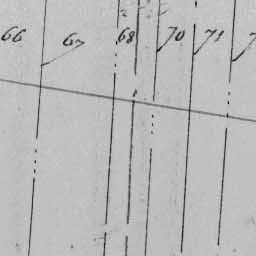 66 67 68 70 71